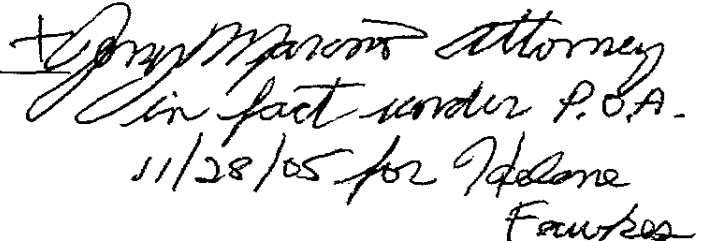 Marino Attorney
in fact under P.O.A.
11/28/05 for Helene
Fawkes